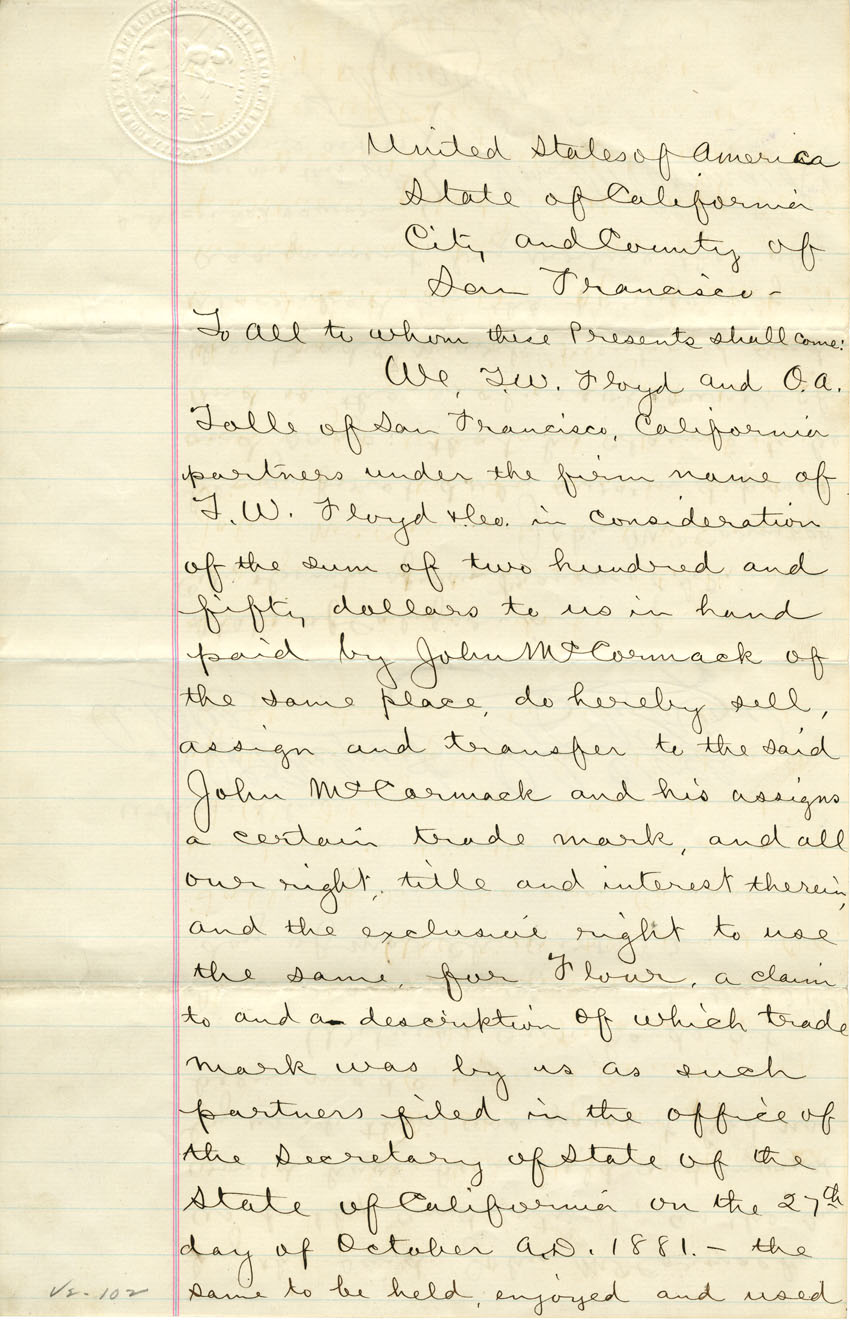 United States of America
State of California
City and County of
San Francisco -
To All to whom these Presents shall come:
We, F.W. Floyd and O.A.
Tolle of San Francisco, California
partners under the firm name of
F.W. Floyd & Co. in consideration
of the sum of two hundred and
fifty dollars to us in hand
paid by John McCormack of
the same place, do hereby sell,
assign and transfer to the said
John McCormack and his assigns
a certain trade mark, and all
our right, title and interest therein,
and the exclusive right to use
the same, for Flour, a claim
to and a description of which trade
mark was by us as such
partners filed in the office of
the Secretary of State of the
State of California on the 27th
day of October A.D. 1881. - the
same to be held, enjoyed and used